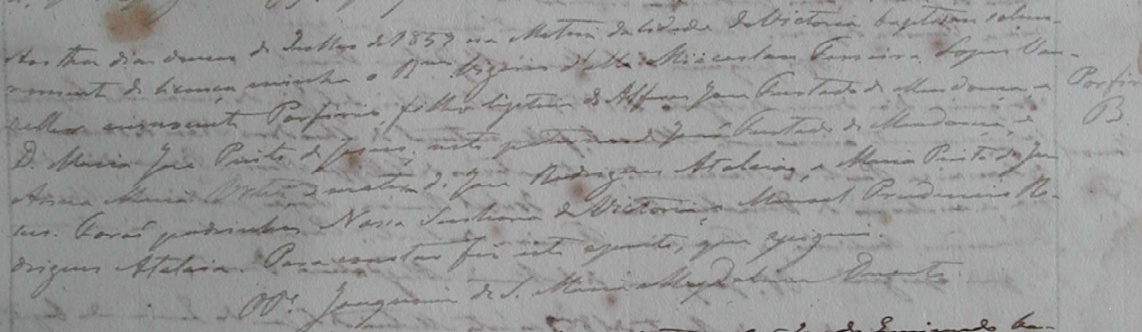 Aos tres dias do mez de Julho de 1859 na Matriz da Cidade da Victoria baptisou solem-
nemente de licença minha o Rdo Vigario della Misceslau Ferreira Lopes Van-
zeller innocente Porfirio, filho ligitimo de Affonso José Furtado de Mendonça, e
D. Maria José Pinto de Jesus; neto paterno de José Furtado de Mendonça, e
Anna Maria e materno de José Rodrigues Atalaia, e Maria Pinto de Je-
sus. Forão padrinhos Nossa Senhora da Victoria, e Manoel Prudencio Ro-
drigues Atalaia. Para constar fiz este assento, que assignei.
Joaquim de S. Maria Magdalena Duarte
Porfirio
B